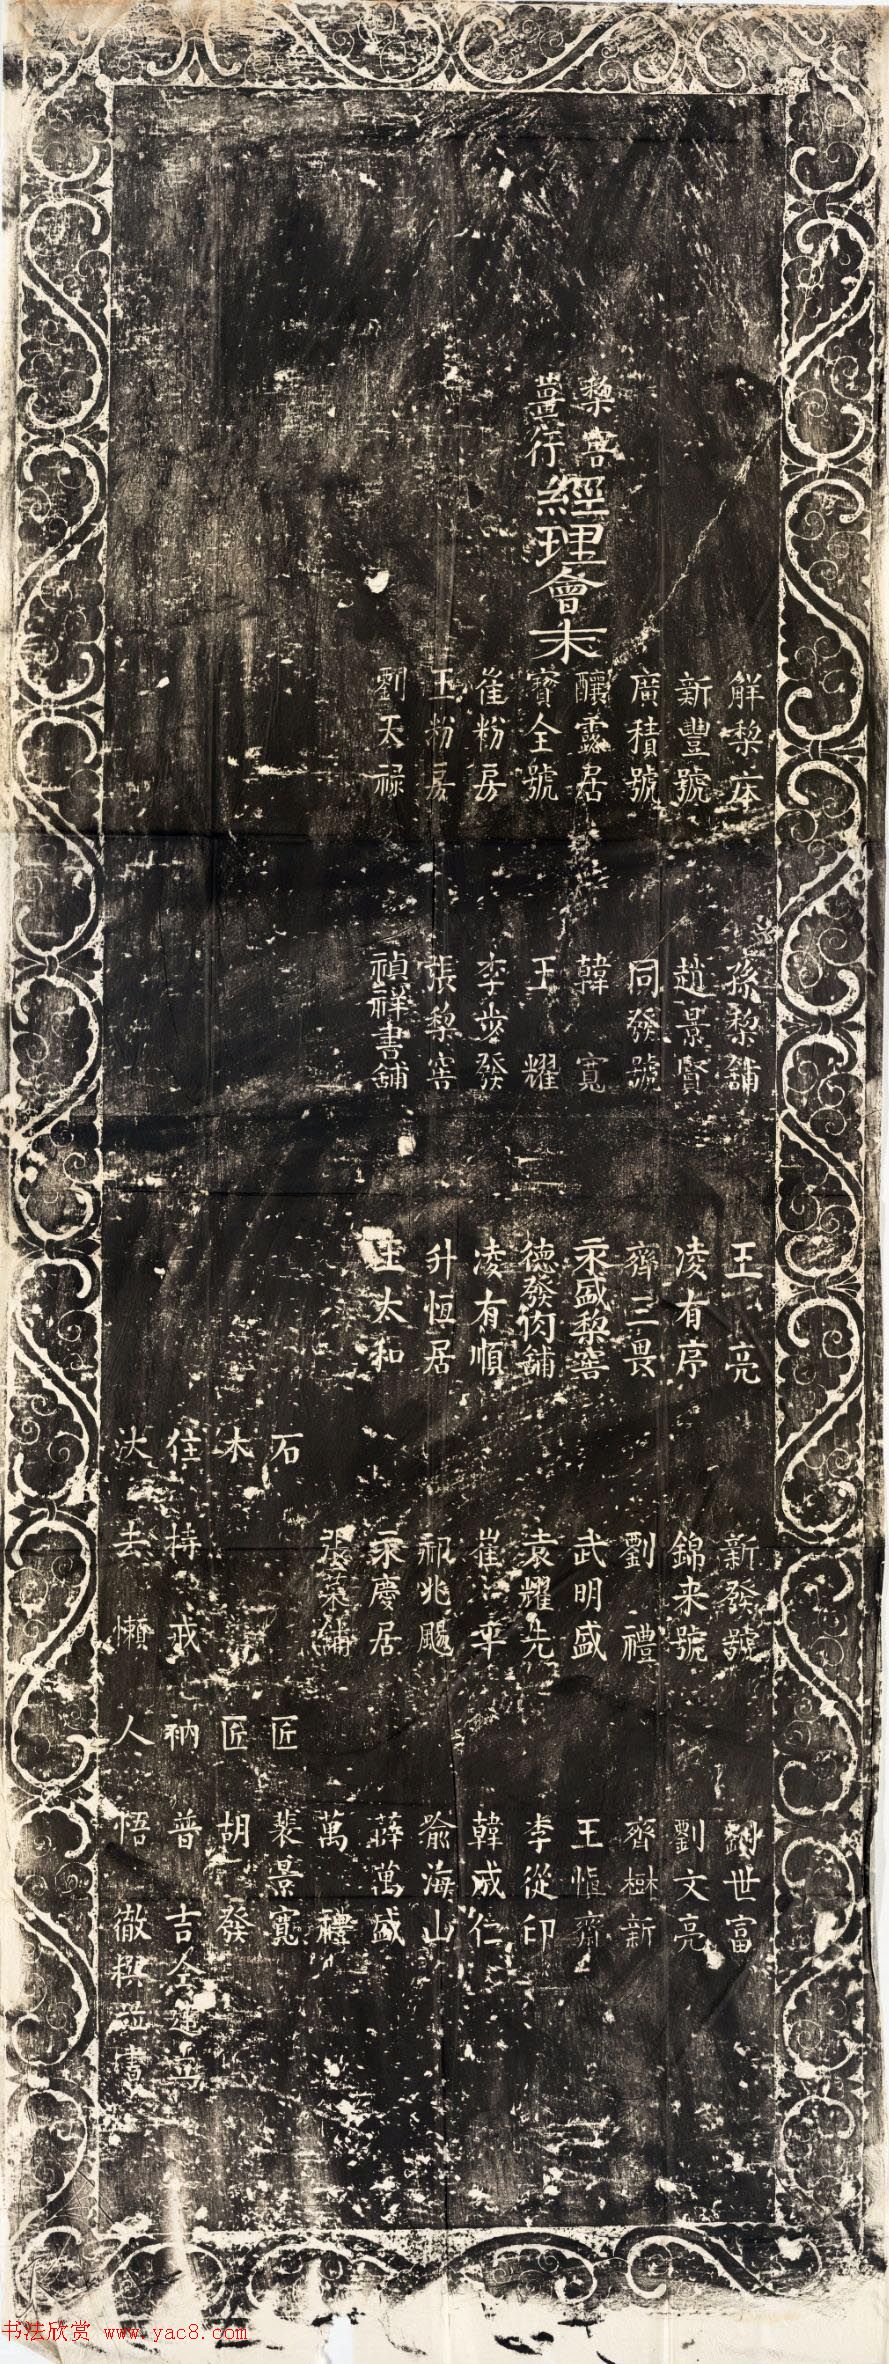 棃窖
行
經理會末
解棃店
新豐號
廣積號
釀露居
寶全號
崔粉房
王粉房
劉天祿
孫棃鋪
趙景賢
同發號
韓寬
王耀
李步發
張棃窖
禎祥書舖
王亮
凌有序
齊三畏
永盛棃窖
德發肉舖
凌有順
升恒居
王太和
新發號
錦来號
劉禮
武明盛
袁耀先
崔平
祁兆颺
永慶居
張菜舖
劉世富
劉文亮
齊樹新
王恒齋
李從印
韓成仁
俞海山
薛萬盛
萬禮
石匠裴景寬
木匠胡發
住持戒衲普吉仝建立
沃去懶人悟徹撰並書
书法欣赏 www.yac8.com